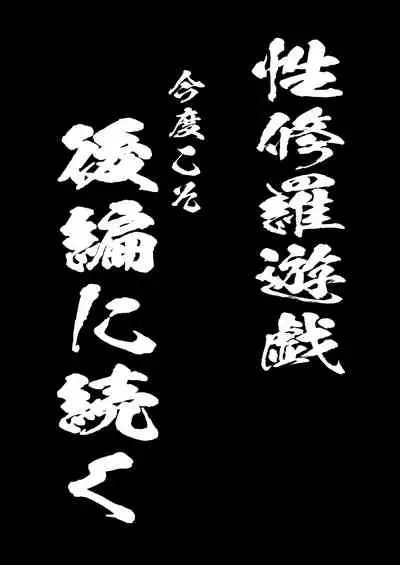 性修羅遊戯
今度こそ
後編に続く